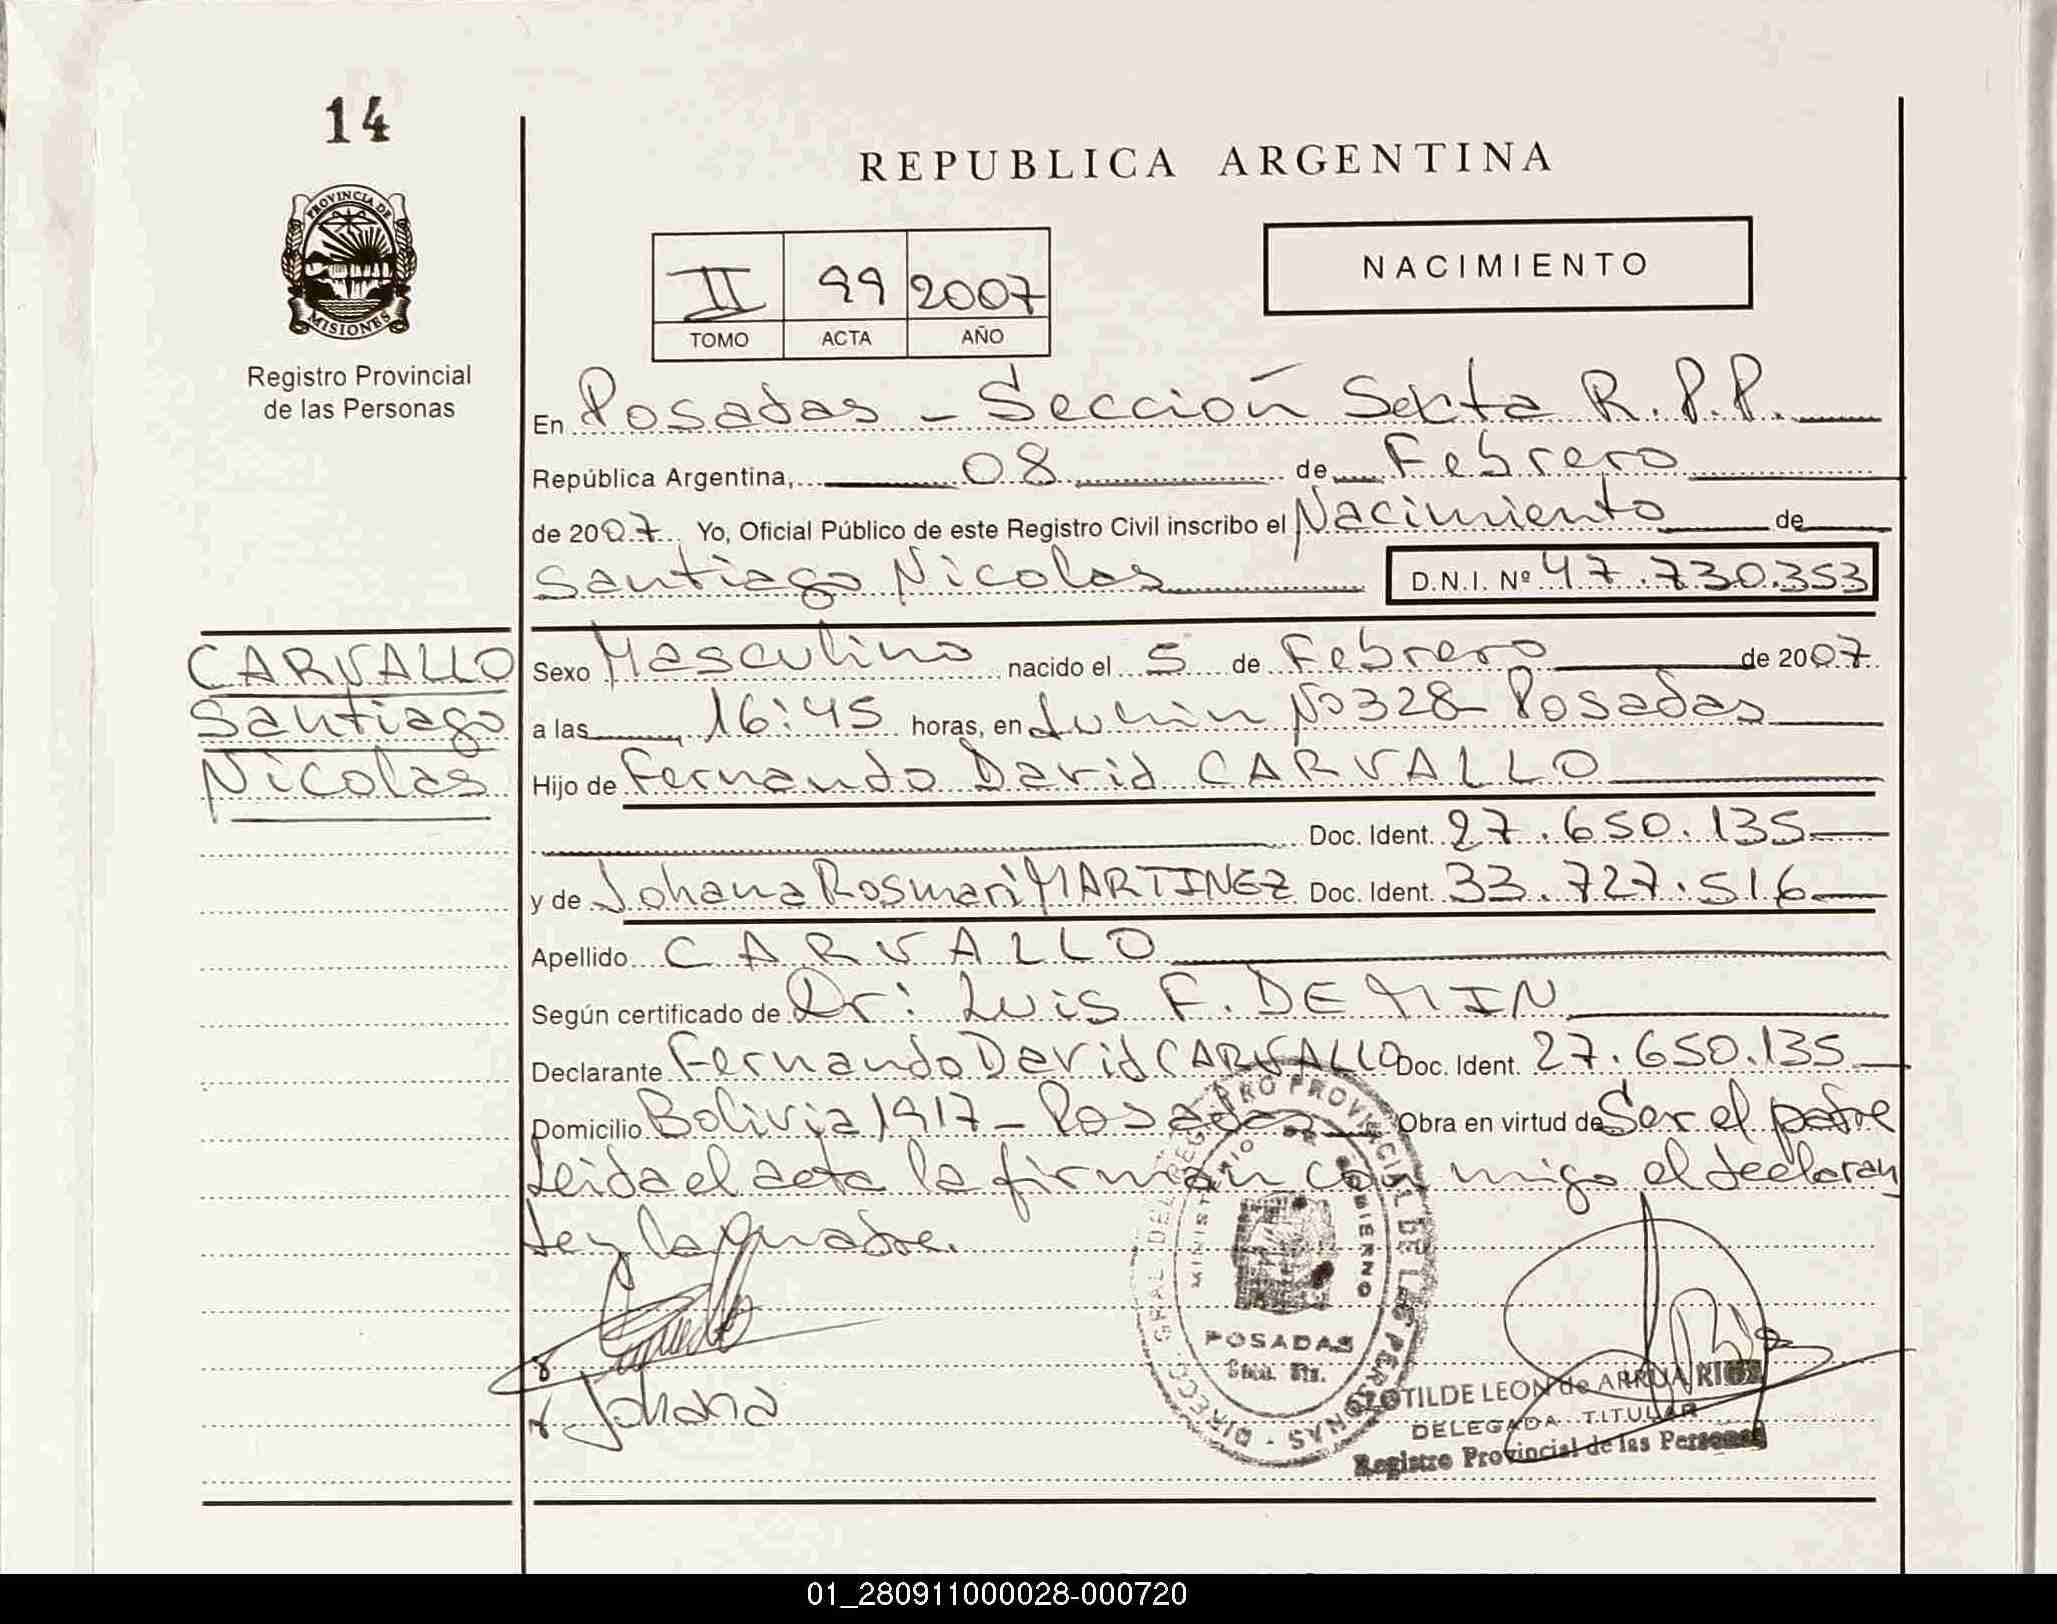 14
PROVINCIA DE
MISIONES
Registro Provincial
de las Personas
REPUBLICA ARGENTINA
II 99 2007
TOMO ACTA AÑO
NACIMIENTO
En Posadas - Sección Sexta R.P.P.
República Argentina, 08 de Febrero
de 2007. Yo, Oficial Público de este Registro Civil inscribo el Nacimiento de
Santiago Nicolas D.N.I. Nº 47.730.353
CARVALLO
Santiago
Nicolas
Sexo Masculino nacido el 5 de Febrero de 2007.
a las 16:45 horas, en Junin Nº 328 Posadas
Hijo de Fernando David CARVALLO
Doc. Ident. 27.650.135
y de Johana Rosmari MARTINEZ Doc. Ident. 33.727.516
Apellido CARVALLO
Según certificado de Dr: Luis F. DEMIN
Declarante Fernando David CARVALLO Doc. Ident. 27.650.135
Domicilio Bolivia 1917 - Posadas Obra en virtud de Ser el padre
Leida el acta la firman con migo el declaran
te y la madre.
Johana
DIRECC. GRAL. DEL REGISTRO PROVINCIAL DE LAS PERSONAS
MINISTERIO DE GOBIERNO
POSADAS
CLOTILDE LEON de ARRUA RIOS
DELEGADA TITULAR
Registro Provincial de las Personas
01_280911000028-000720